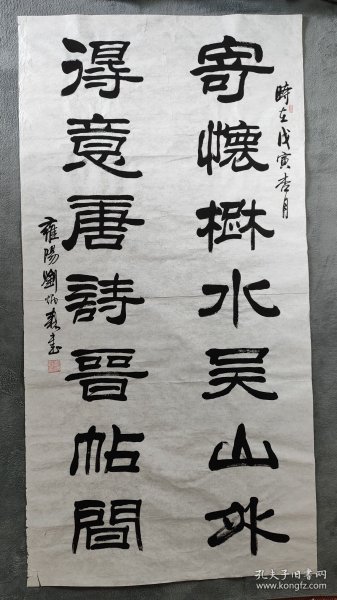 時在戊寅杏月
寄懷樾水吴山外
得意唐詩晉帖間
雍陽劉炳森書
孔夫子旧书网
www.kongfz.com